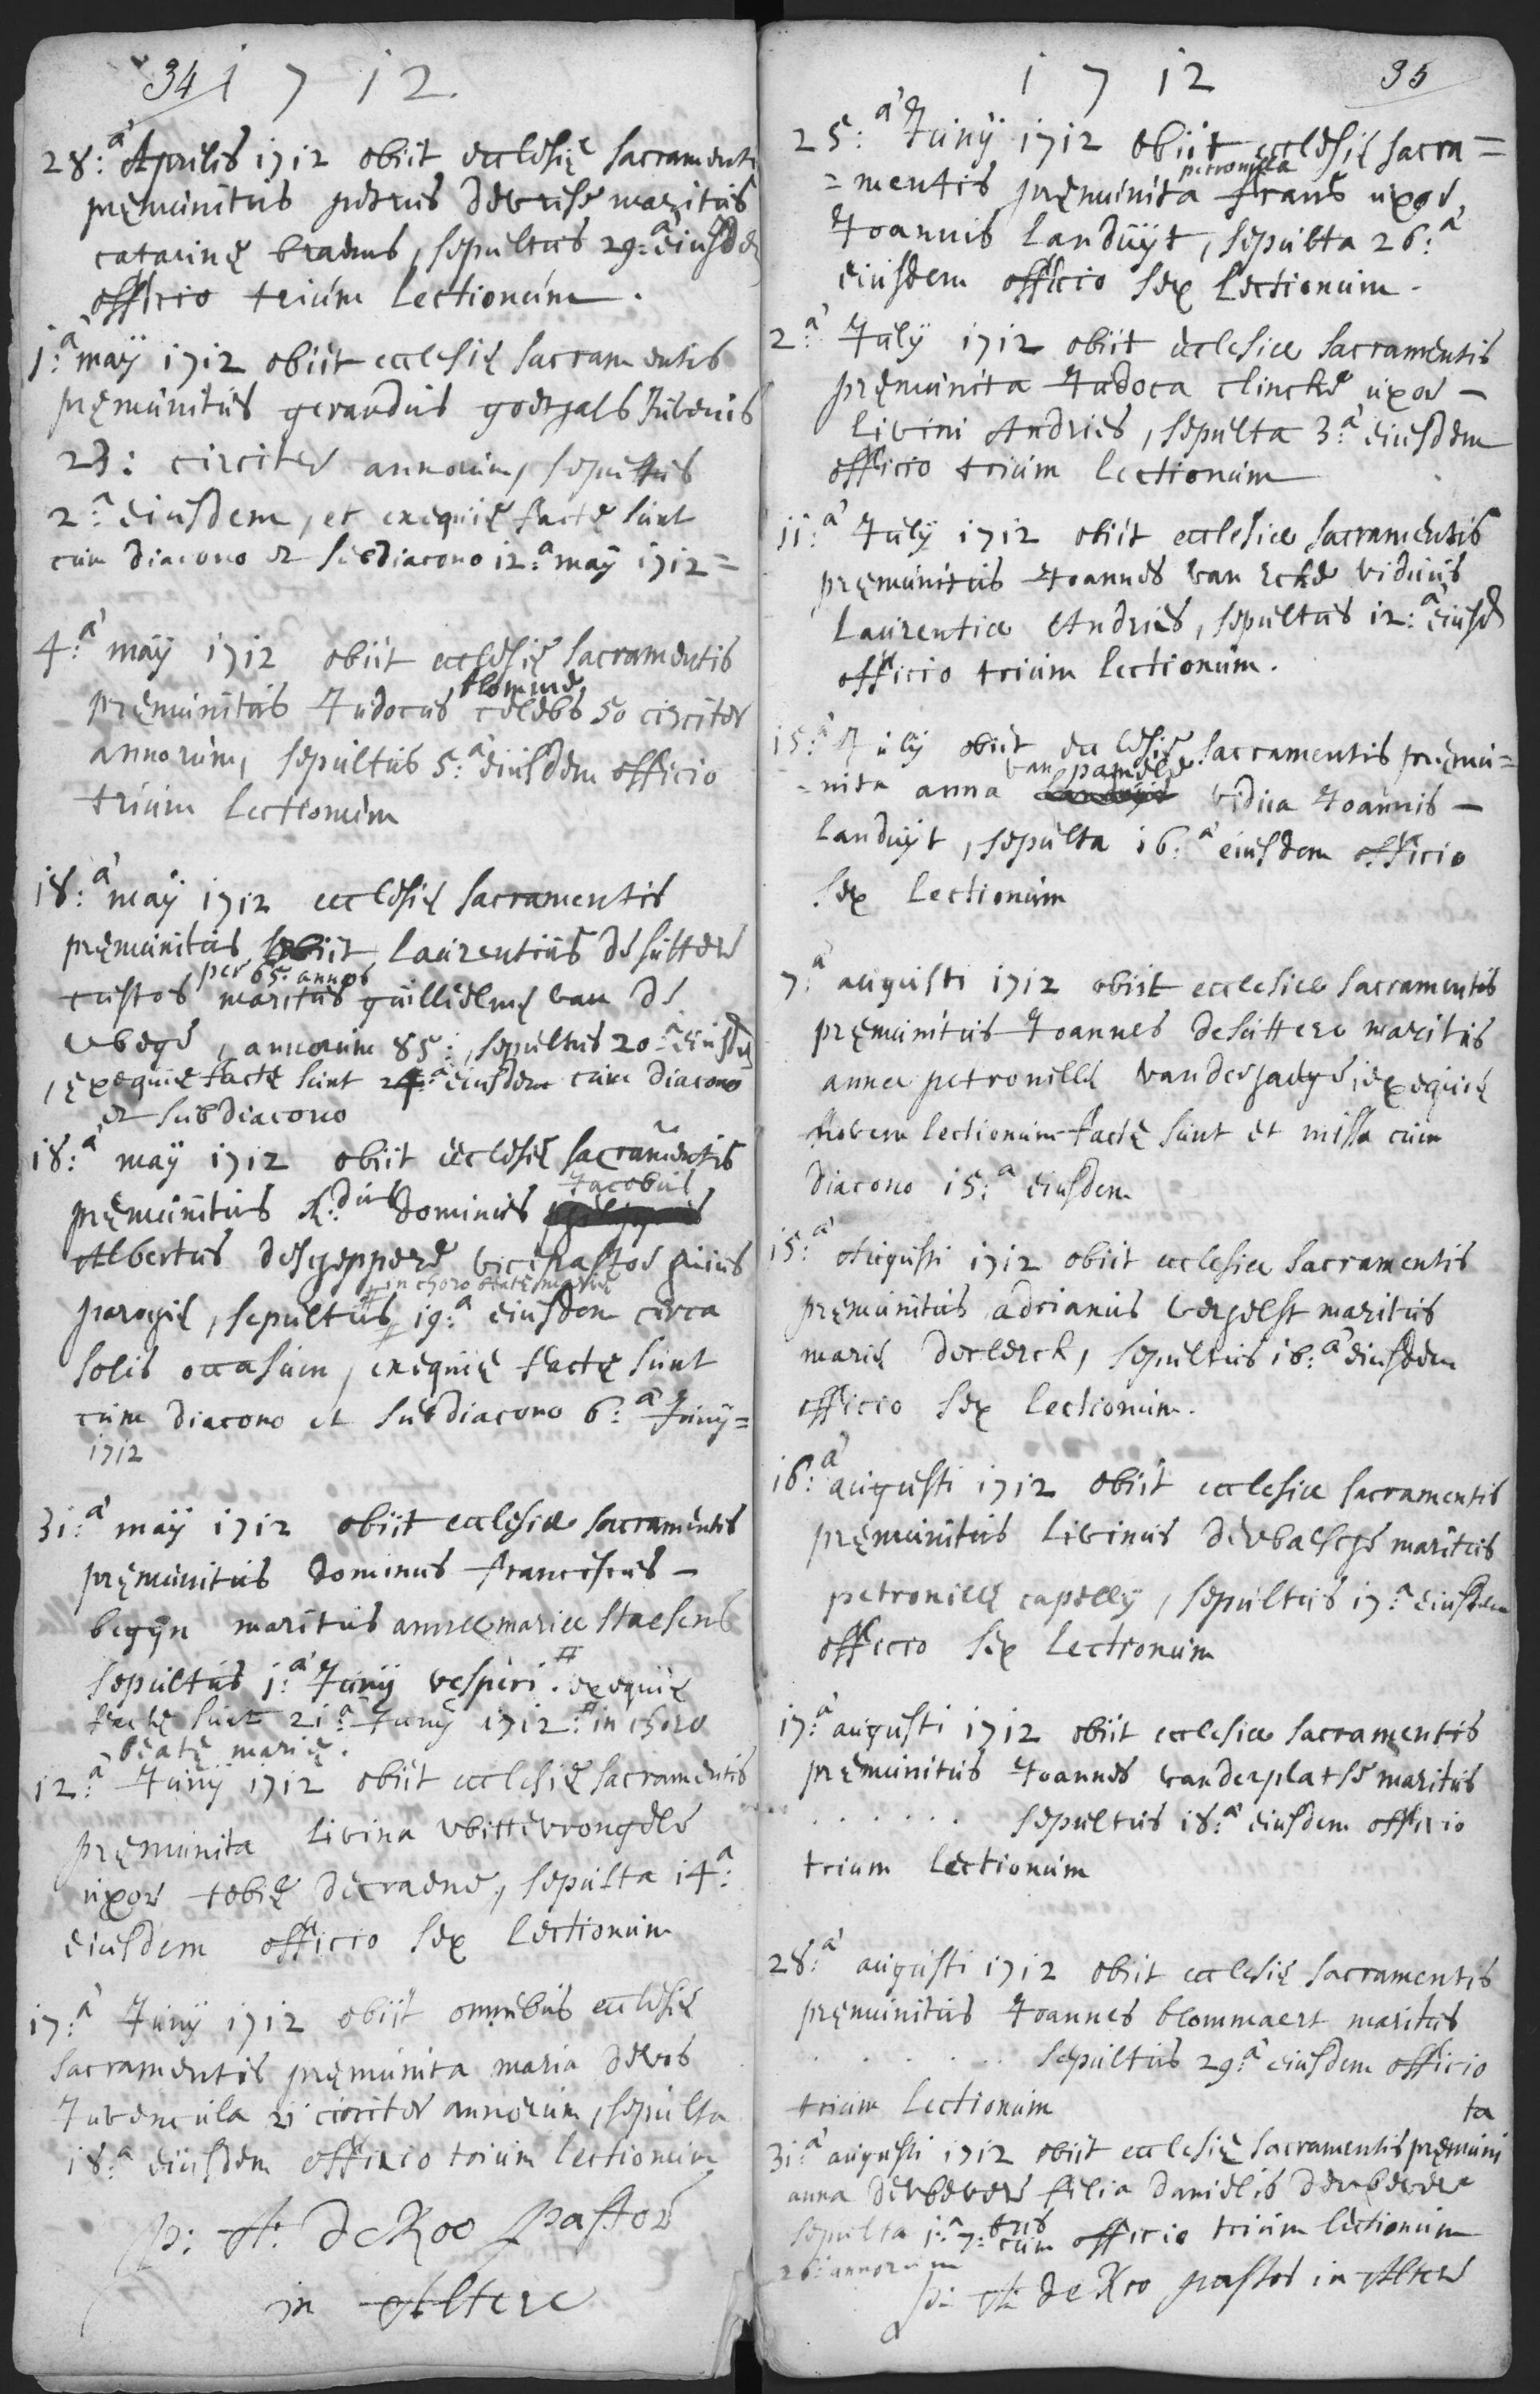 34 1712
28:ª Aprilis 1712 obiit ecclesię sacramentis
pręmunitus petrus devrise maritus
catarinę braems, sepultus 29:ª eiusdem
officio trium lectionum.
1:ª maÿ 1712 obiit ecclesię sacramentis
pręmunitus gerardus goetgals Juvenis
23: circiter annorum, sepultus
2:ª eiusdem, et exequię factę sunt
cum diacono et subdiacono 12:ª maÿ 1712=
4:ª maÿ 1712 obiit ecclesię sacramentis
blomme
pręmunitus Judocus celebs 50 circiter
annorum, sepultus 5:ª eiusdem officio
trium lectionum
18:ª maÿ 1712 ecclesię sacramentis
pręmunitus obiit Laurentius de sutter
per 65: annos
custos maritus guillielmę van de
, annorum 85:, sepultus 20:ª eiusdem
, exequię factę sunt 24:ª eiusdem cum diacono
et subdiacono
18:ª maÿ 1712 obiit ecclesię sacramentis
Jacobus
pręmunitus R:dus dominus
Albertus descheppere vicepastor huius
in choro beatę marię
parochię, sepultus 19:ª eiusdem circa
solis occasum, exequię factę sunt
cum diacono et subdiacono 6:ª Junÿ=
1712
31:ª maÿ 1712 obiit ecclesiæ sacramentis
pręmunitus dominus franciscus –
begÿn maritus annæ mariæ staesens
sepultus 1:ª Junÿ vesperi # exequię
factę sunt 21:ª Junÿ 1712: # in choro
beatę marię.
12:ª Junÿ 1712 obiit ecclesię sacramentis
pręmunita livina wittevrongele
uxor tobię decraene, sepulta 14:ª
eiusdem officio sex lectionum
17:ª Junÿ 1712 obiit omnibus ecclesię
sacramentis pręmunita maria devos
Juvencula 21 circiter annorum, sepulta
18:ª eiusdem officio trium lectionum
p: A: de Roo pastor
in Altere
1712 35
25:ª Junÿ 1712 obiit ecclesię sacra=
petronilla
=mentis pręmunita frans uxor
Joannis Landuÿt, sepulta 26:ª
eiusdem officio sex lectionum.
2:ª Julÿ 1712 obiit ecclesiæ sacramentis
pręmunita Judoca clincke uxor –
Livini Andries, sepulta 3:ª eiusdem
officio trium lectionum
11:ª Julÿ 1712 obiit ecclesiæ sacramentis
pręmunitus Joannes van Ecke viduus
Laurentiæ Andries, sepultus 12:ª eiusd
officio trium lectionum.
15:ª Julÿ obiit ecclesię sacramentis pręmu=
van pamele
=nita anna vidua Joannis –
Landuÿt, sepulta 16:ª eiusdem officio
sex lectionum
7:ª augusti 1712 obiit ecclesiæ sacramentis
pręmunitus Joannes desuttere maritus
annæ petronillę , exequię
novem lectionum factę sunt et missa cum
diacono 15:ª eiusdem
15:ª Augusti 1712 obiit ecclesiæ sacramentis
pręmunitus adrianus verhelst maritus
marię declerck, sepultus 16:ª eiusdem
officio sex lectionum.
16:ª augusti 1712 obiit ecclesiæ sacramentis
pręmunitus Livinus maritus
petronillę capelly, sepultus 17:ª eiusdem
officio sex lectionum
17:ª augusti 1712 obiit ecclesiæ sacramentis
pręmunitus Joannes vanderplatse maritus
. . . . . . sepultus 18:ª eiusdem officio
trium lectionum
28:ª augusti 1712 obiit ecclesię sacramentis
pręmunitus Joannes blommaert maritus
. . . . . . sepultus 29:ª eiusdem officio
trium lectionum
ta
31:ª augusti 1712 obiit ecclesię sacramentis pręmuni
anna filia danielis
sepulta 1:ª 7:bris cum officio trium lectionum
26: annorum
p: A: de Roo pastor in Alter